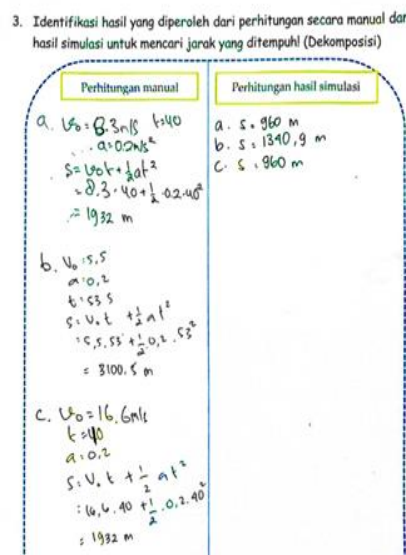 3. Identifikasi hasil yang diperoleh dari perhitungan secara manual dan
hasil simulasi untuk mencari jarak yang ditempuh! (Dekomposisi)
Perhitungan manual
a. V₀ = 8.3 m/s t=40
a=0.2m/s²
S= V₀t + ½at²
= 8.3 . 40 + ½ 0.2.40²
= 1932 m
b. V₀ : 5,5
a : 0,2
t : 53 s
S : V₀ t + ½ at²
: 5,5 . 53 + ½ . 0,2 . 53²
= 3100.5 m
c. V₀ = 16.6m/s
t = 40
a : 0,2
S : V₀ t + ½ at²
: 16,6 . 40 + ½ . 0,2 . 40²
: 1932 m
Perhitungan hasil simulasi
a. S = 960 m
b. S : 1340,9 m
c. S : 960 m